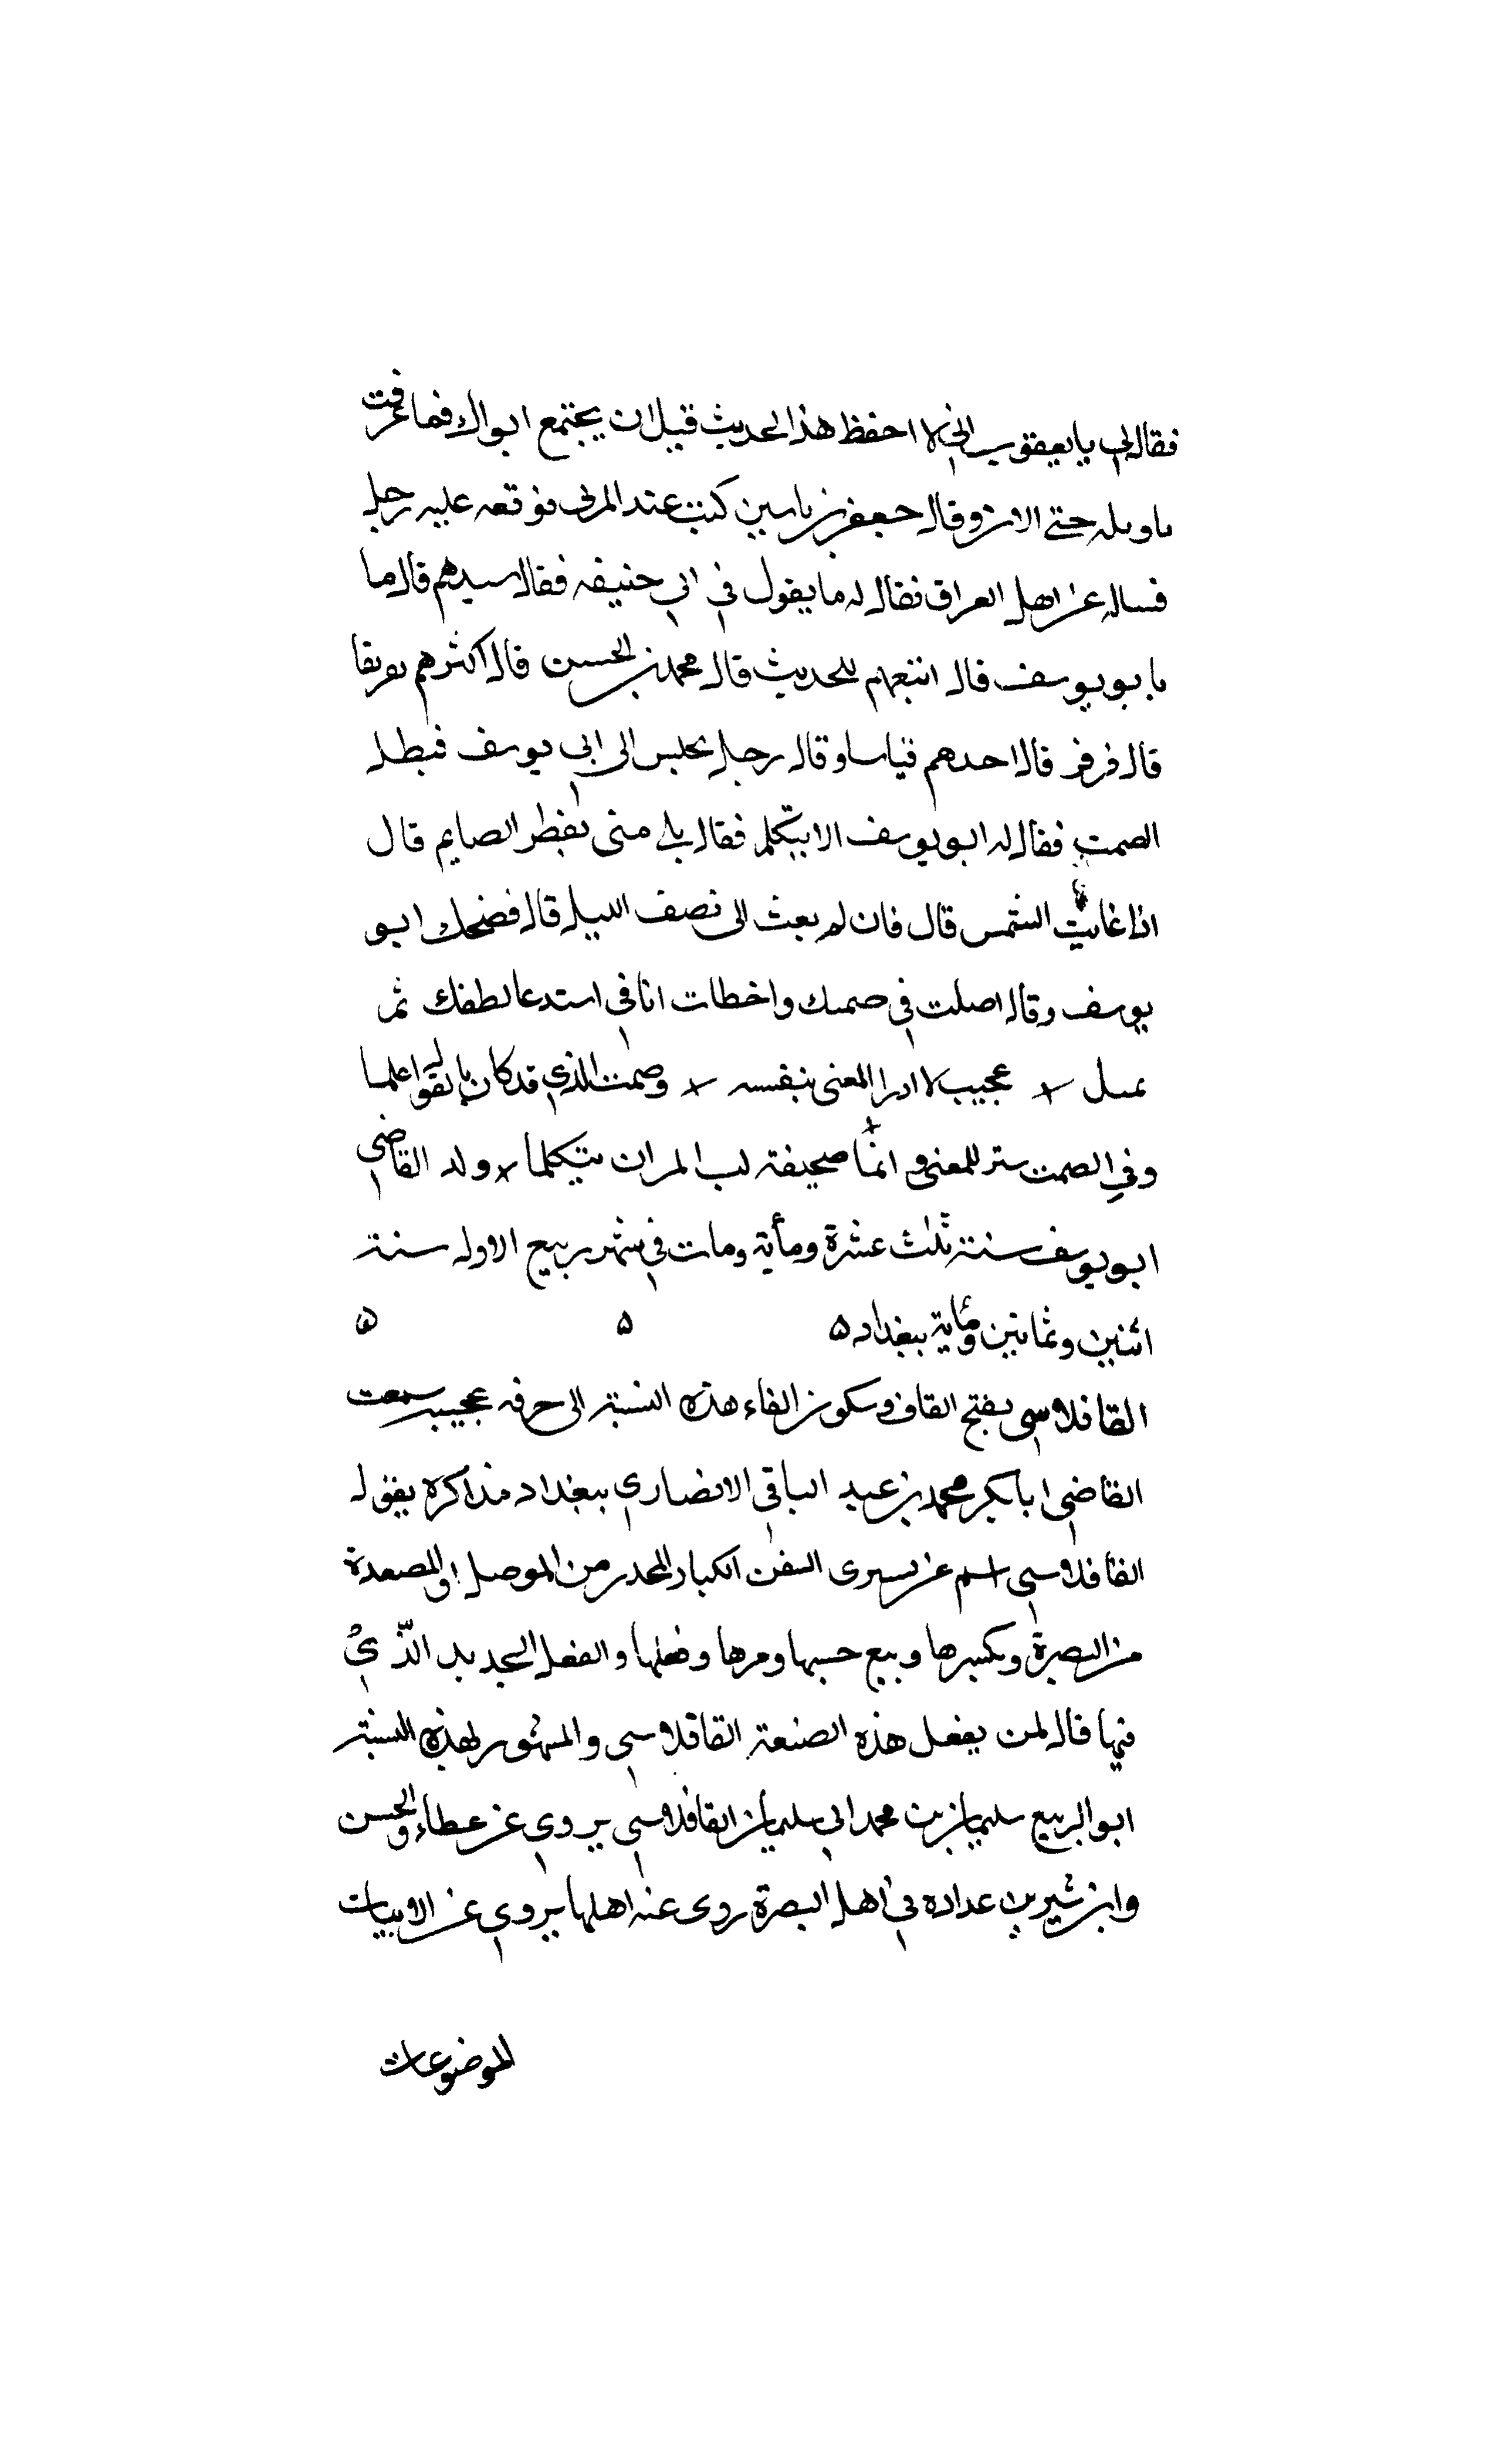 فقال لي يا يعقوب اني لا احفظ هذا الحديث قبل ان يجتمع ابواك فما عرفت
تاويله حتى الان وقال جعفر بن ياسين كنت عند المزني فوقف عليه رجل
فساله عن اهل العراق فقال له ما يقول في ابي حنيفه فقال سيدهم قال ما
بابو يوسف قال اتبعهم للحديث قال محمد بن الحسن قال اكثرهم تفريقا
قال فزفر قال احدهم قياسا وقال رجل يجلس الى ابي يوسف فيطيل
الصمت فقال له ابو يوسف الا يتكلم فقال بلى متى يفطر الصايم قال
اذا غابت الشمس قال فان لم يغب الى نصف الليل قال فضحك ابو
يوسف وقال اصبت في صمتك واخطات انا في استدعا لطفك ثم
تمثل عجيب لا ادرا المعنى بنفسه وصمت الذي قد كان بالقول اعلما
وفي الصمت ستر للمعنى و انما صحيفة لب المر ان يتكلما ولد القاضي
ابو يوسف سنة ثلث عشرة ومأية ومات في شهر ربيع الاول سنة
اثنين وثمانين ومأية ببغداد ٥ ٥ ٥
القافلاسي بفتح القاف وسكون الفاء هذه النسبة الى حرفه عجيبه سمعت
القاضي ابا بكر محمد بن عبد الباقي الانصاري ببغداد مذاكرة يقول
القافلاسي اسم عن يسيرى السفن الكبار المحدر من الموصل او المصعدة
من البصرة ويكسرها وبيع خشبها و وقفلها والقفل الحديد الذي
فيها قال لمن يفعل هذه الصنعة القافلاسي والمشهور بهذه النسبة
ابو الربيع سليمان بن محمد ابي سليمان القافلاسي يروي عن عطاء والحسن
وابن سيرين عداده في اهل البصرة روى عنه اهلها يروي عن الاثبات
الموضوعات